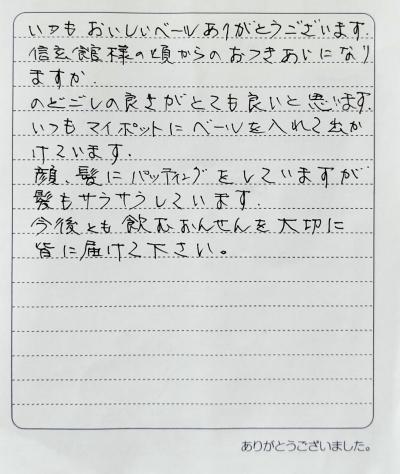 いつもおいしいベールありがとうございます.
信玄館様の頃からのおつきあいになり
ますが.
のどごしの良さがとても良いと思います.
いつもマイポットにベールを入れて出か
けています.
顔、髪にパッティングをしていますが
髪もサラサラしています.
今後とも飲むおんせんを大切に
皆に届けて下さい。
ありがとうございました。